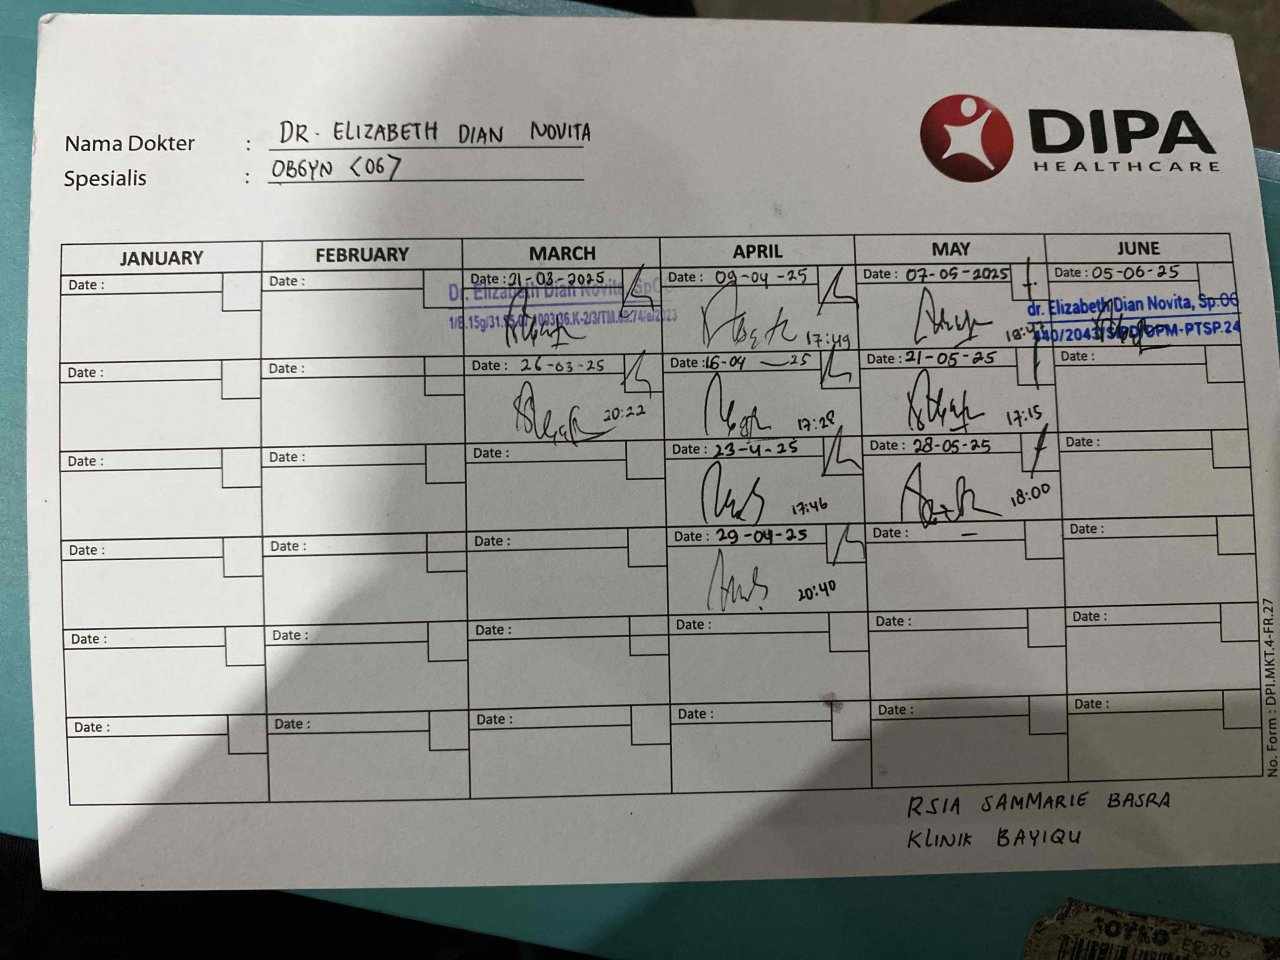 Nama Dokter : DR. ELIZABETH DIAN NOVITA
Spesialis : OBGYN <06>
DIPA
HEALTHCARE
JANUARY FEBRUARY MARCH APRIL MAY JUNE
Date : Date : Date : 21-03-2025 Date : 09-04-25 Date : 07-05-2025 Date : 05-06-25
Dr. Elizabeth Dian Novita, SpOG
dr. Elizabeth Dian Novita, Sp.OG
17:49
Date : Date : Date : 26-03-25 Date : 16-04-25 Date : 21-05-25 Date :
20:22 17:28 17:15
Date : Date : Date : Date : 23-4-25 Date : 28-05-25 Date :
17:46 18:00
Date : Date : Date : Date : 29-04-25 Date : — Date :
20:40
Date : Date : Date : Date : Date : Date :
Date : Date : Date : Date : Date : Date :
No. Form : DPI.MKT.4-FR.27
RSIA SAMMARIE BASRA
KLINIK BAYIQU